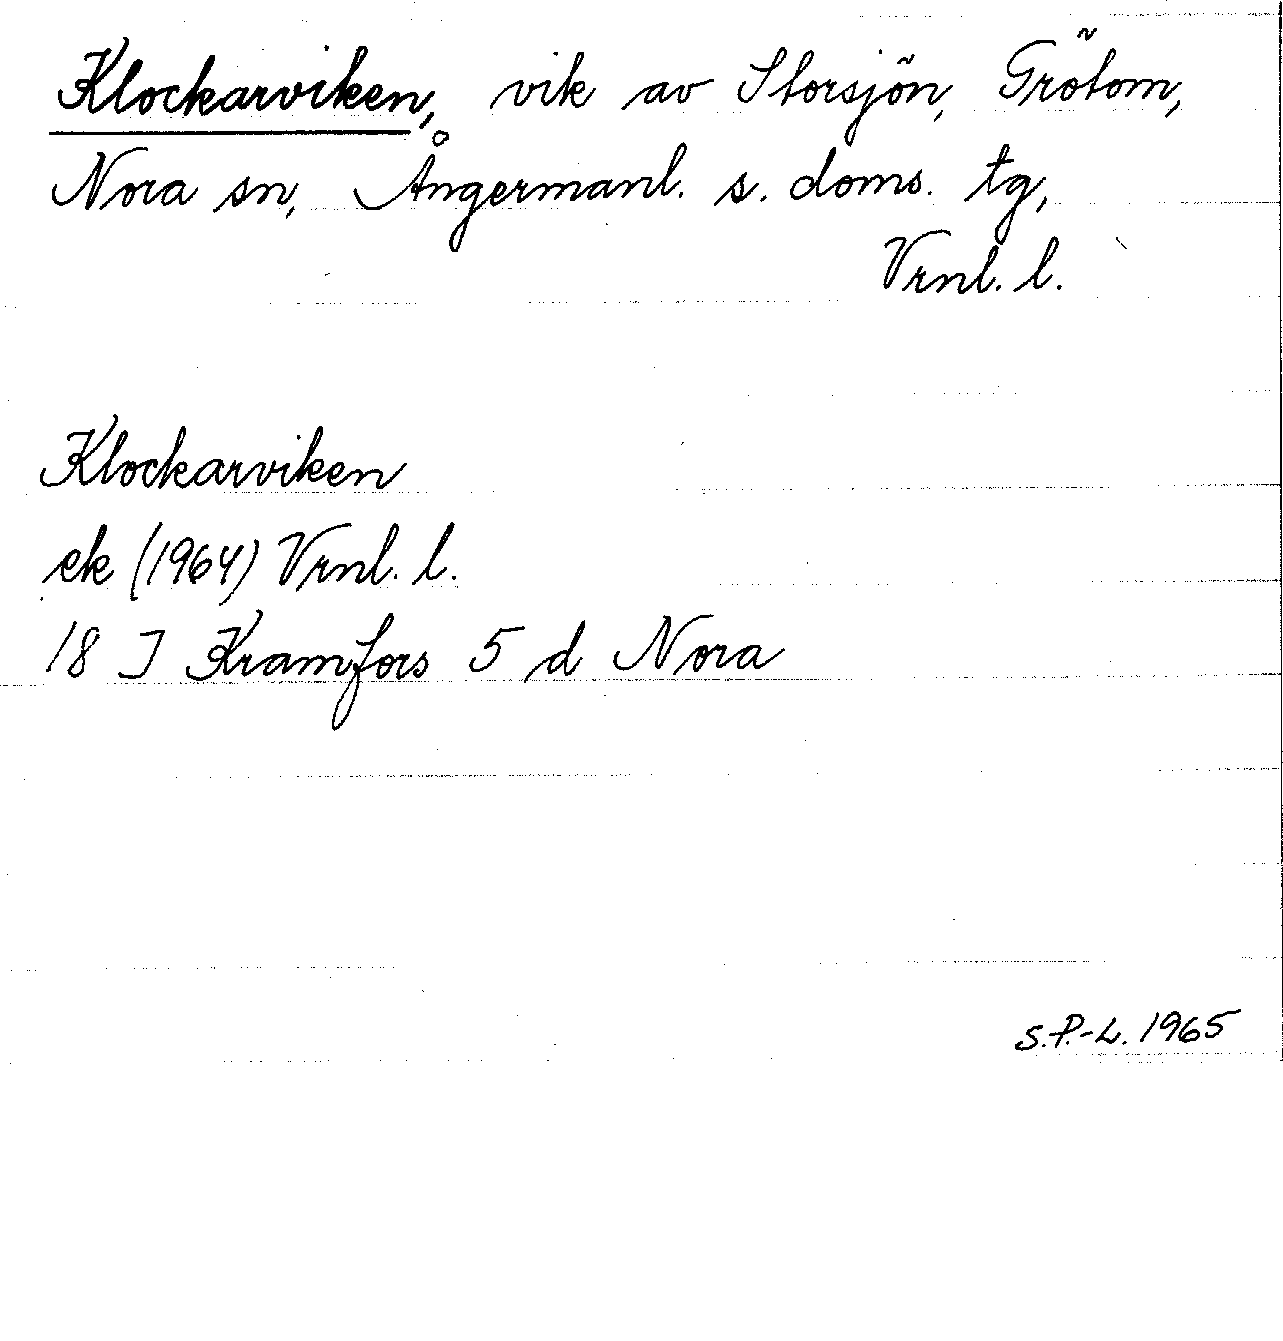 Klockarviken, vik av Storsjön, Grötom,
Nora sn, Ångermanl. s. doms. tg,
Vrnl. l.
Klockarviken
ek (1964) Vrnl. l.
18 I Kramfors 5 d Nora
S.P.-L. 1965